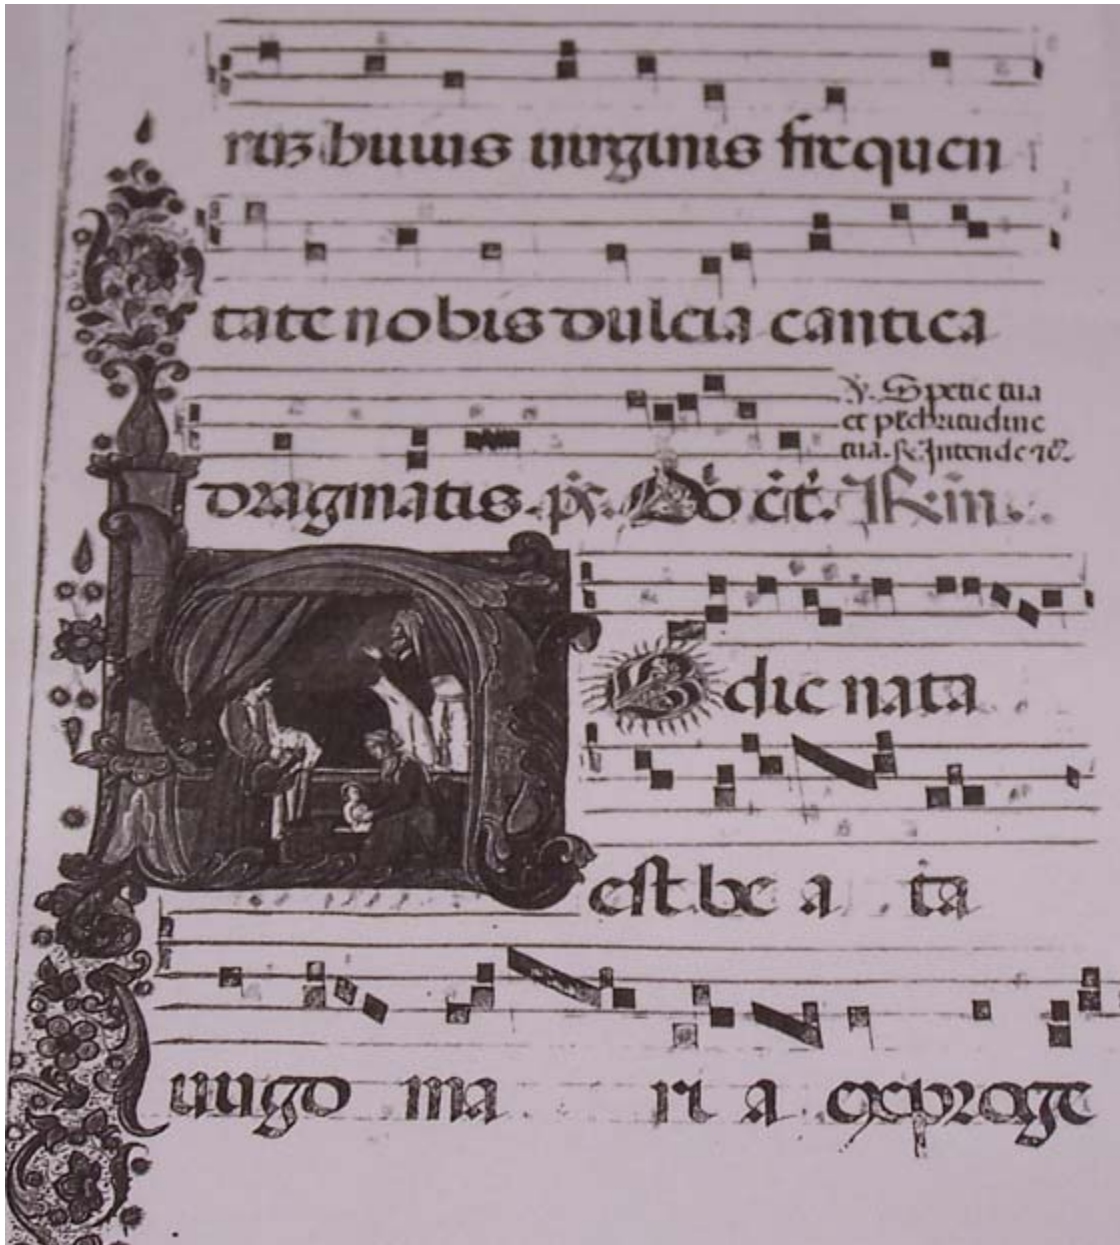 riz huius uirginis frequen
tate nobis dulcia cantica
℣. Spetie tua
et pulchritudine
tua. Intende
dragmatis. ps. Dñs
Hodie nata
est be a ta
uirgo ma ri a ex proge